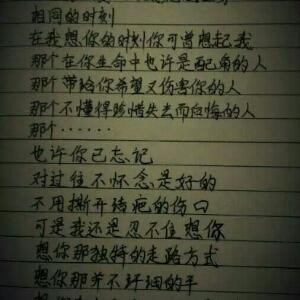 相同的时刻
在我想你的时刻你可曾想起我
那个在你生命中也许是配角的人
那个带给你希望又伤害你的人
那个不懂得珍惜失去而后悔的人
那个……
也许你已忘记
对过往不怀念是好的
不用撕开结疤的伤口
可是我还是忍不住想你
想你那独特的走路方式
想你那并不详细的手